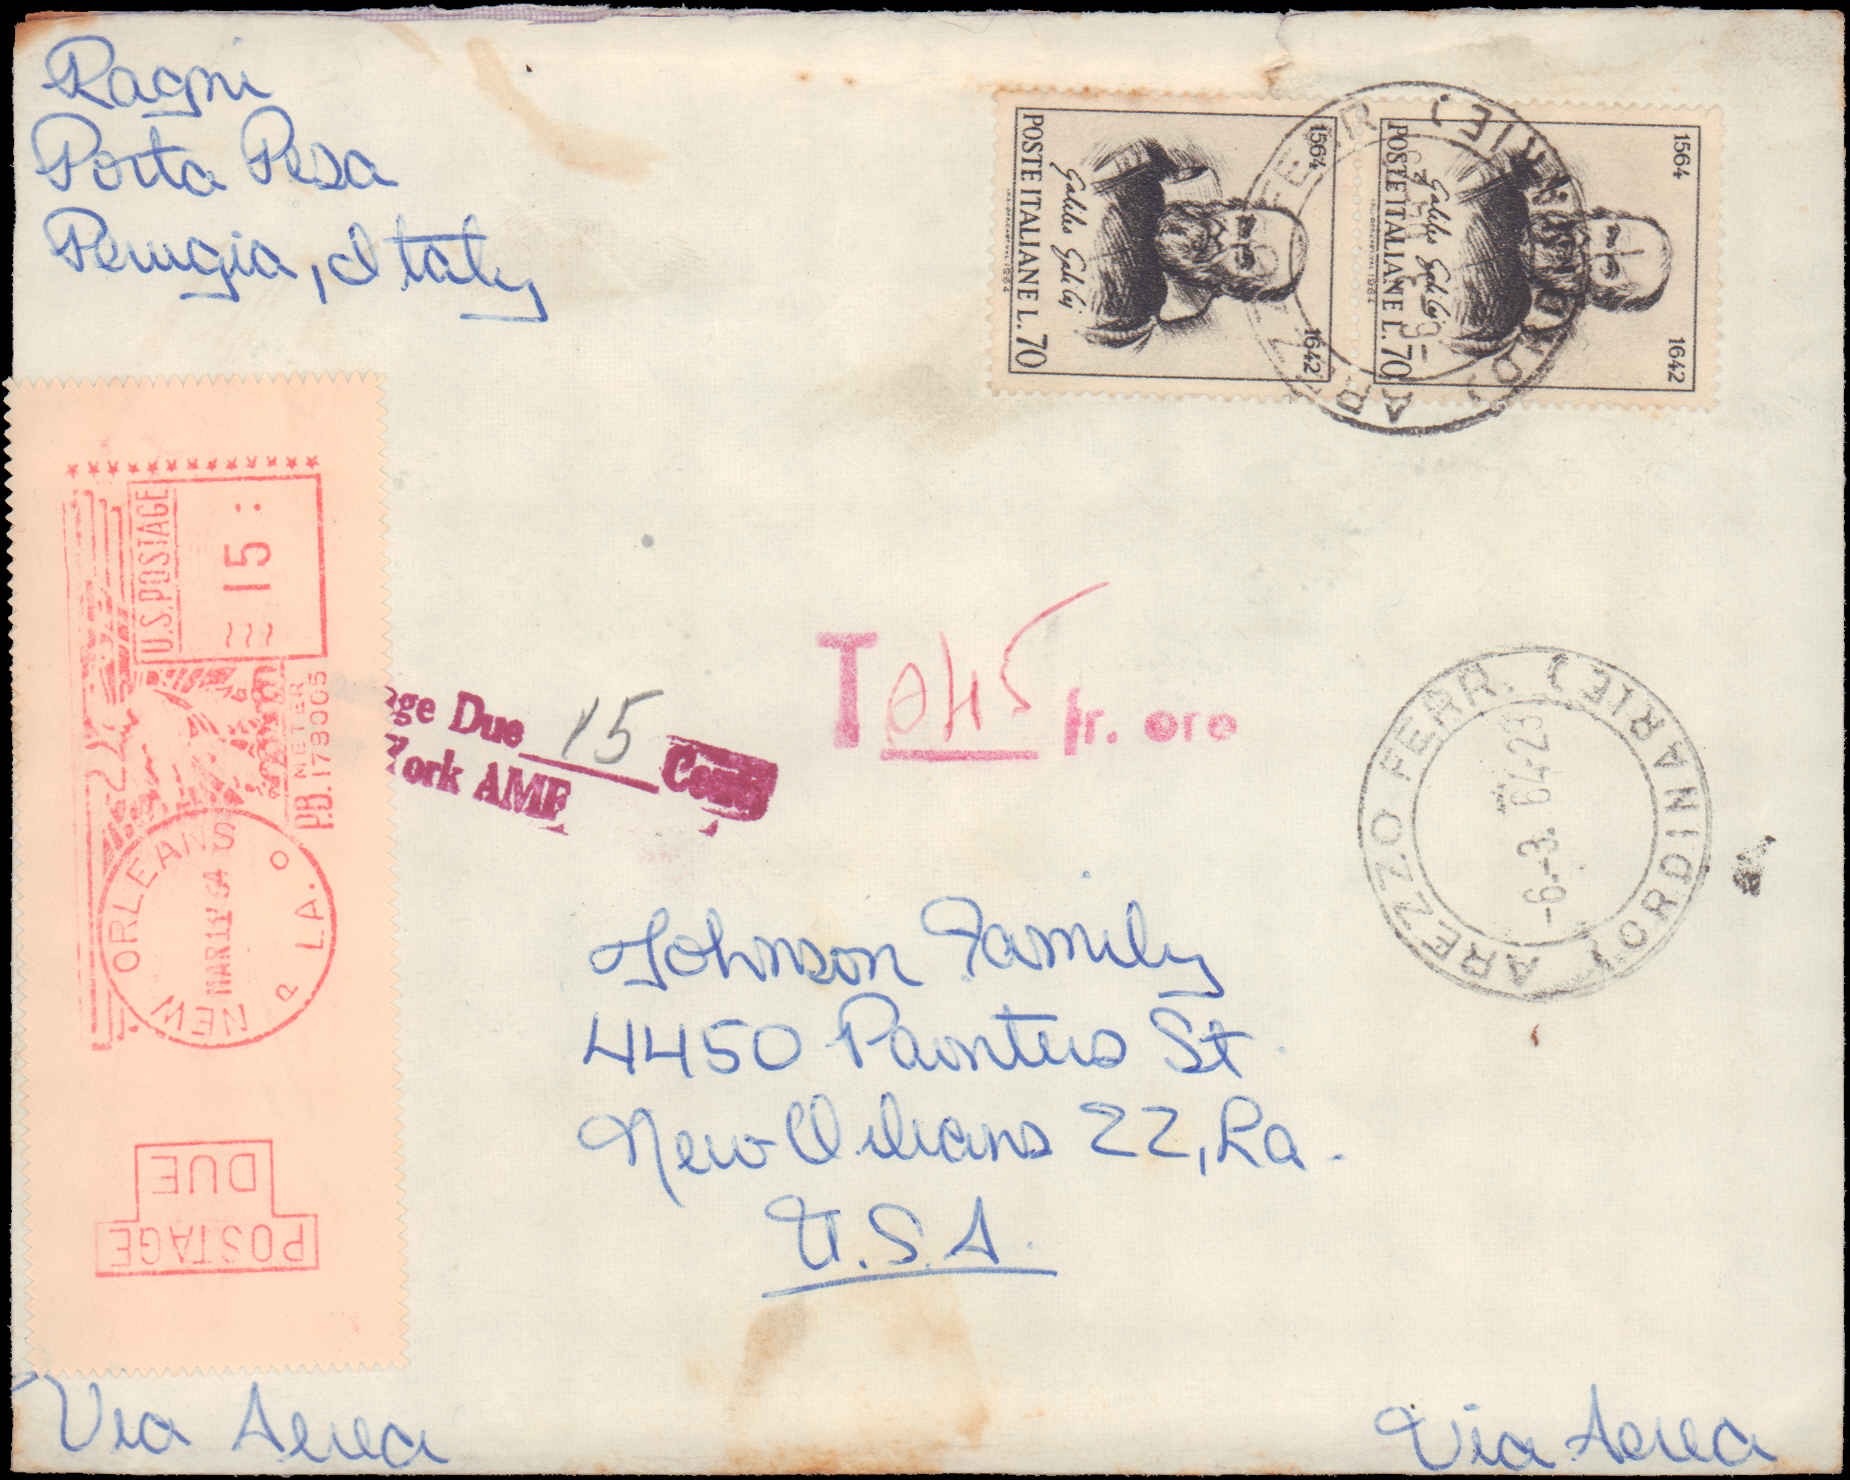 Ragni
Porta Pesa
Perugia, Italy
POSTE ITALIANE L. 70
Galileo Galilei
1564
1642
POSTE ITALIANE L. 70
Galileo Galilei
1564
1642
AREZZO FERR. (ORDINARIE)
U.S. POSTAGE
15
P.B. METER
NEW ORLEANS
LA.
MAR 64
POSTAGE
DUE
age Due 15
York AMF
T 045 fr. oro
AREZZO FERR. (ORDINARIE)
-6.-3. 64-23
Johnson Family
4450 Painters St.
New Orleans 22, La.
U.S.A.
Via Aerea
Via Aerea